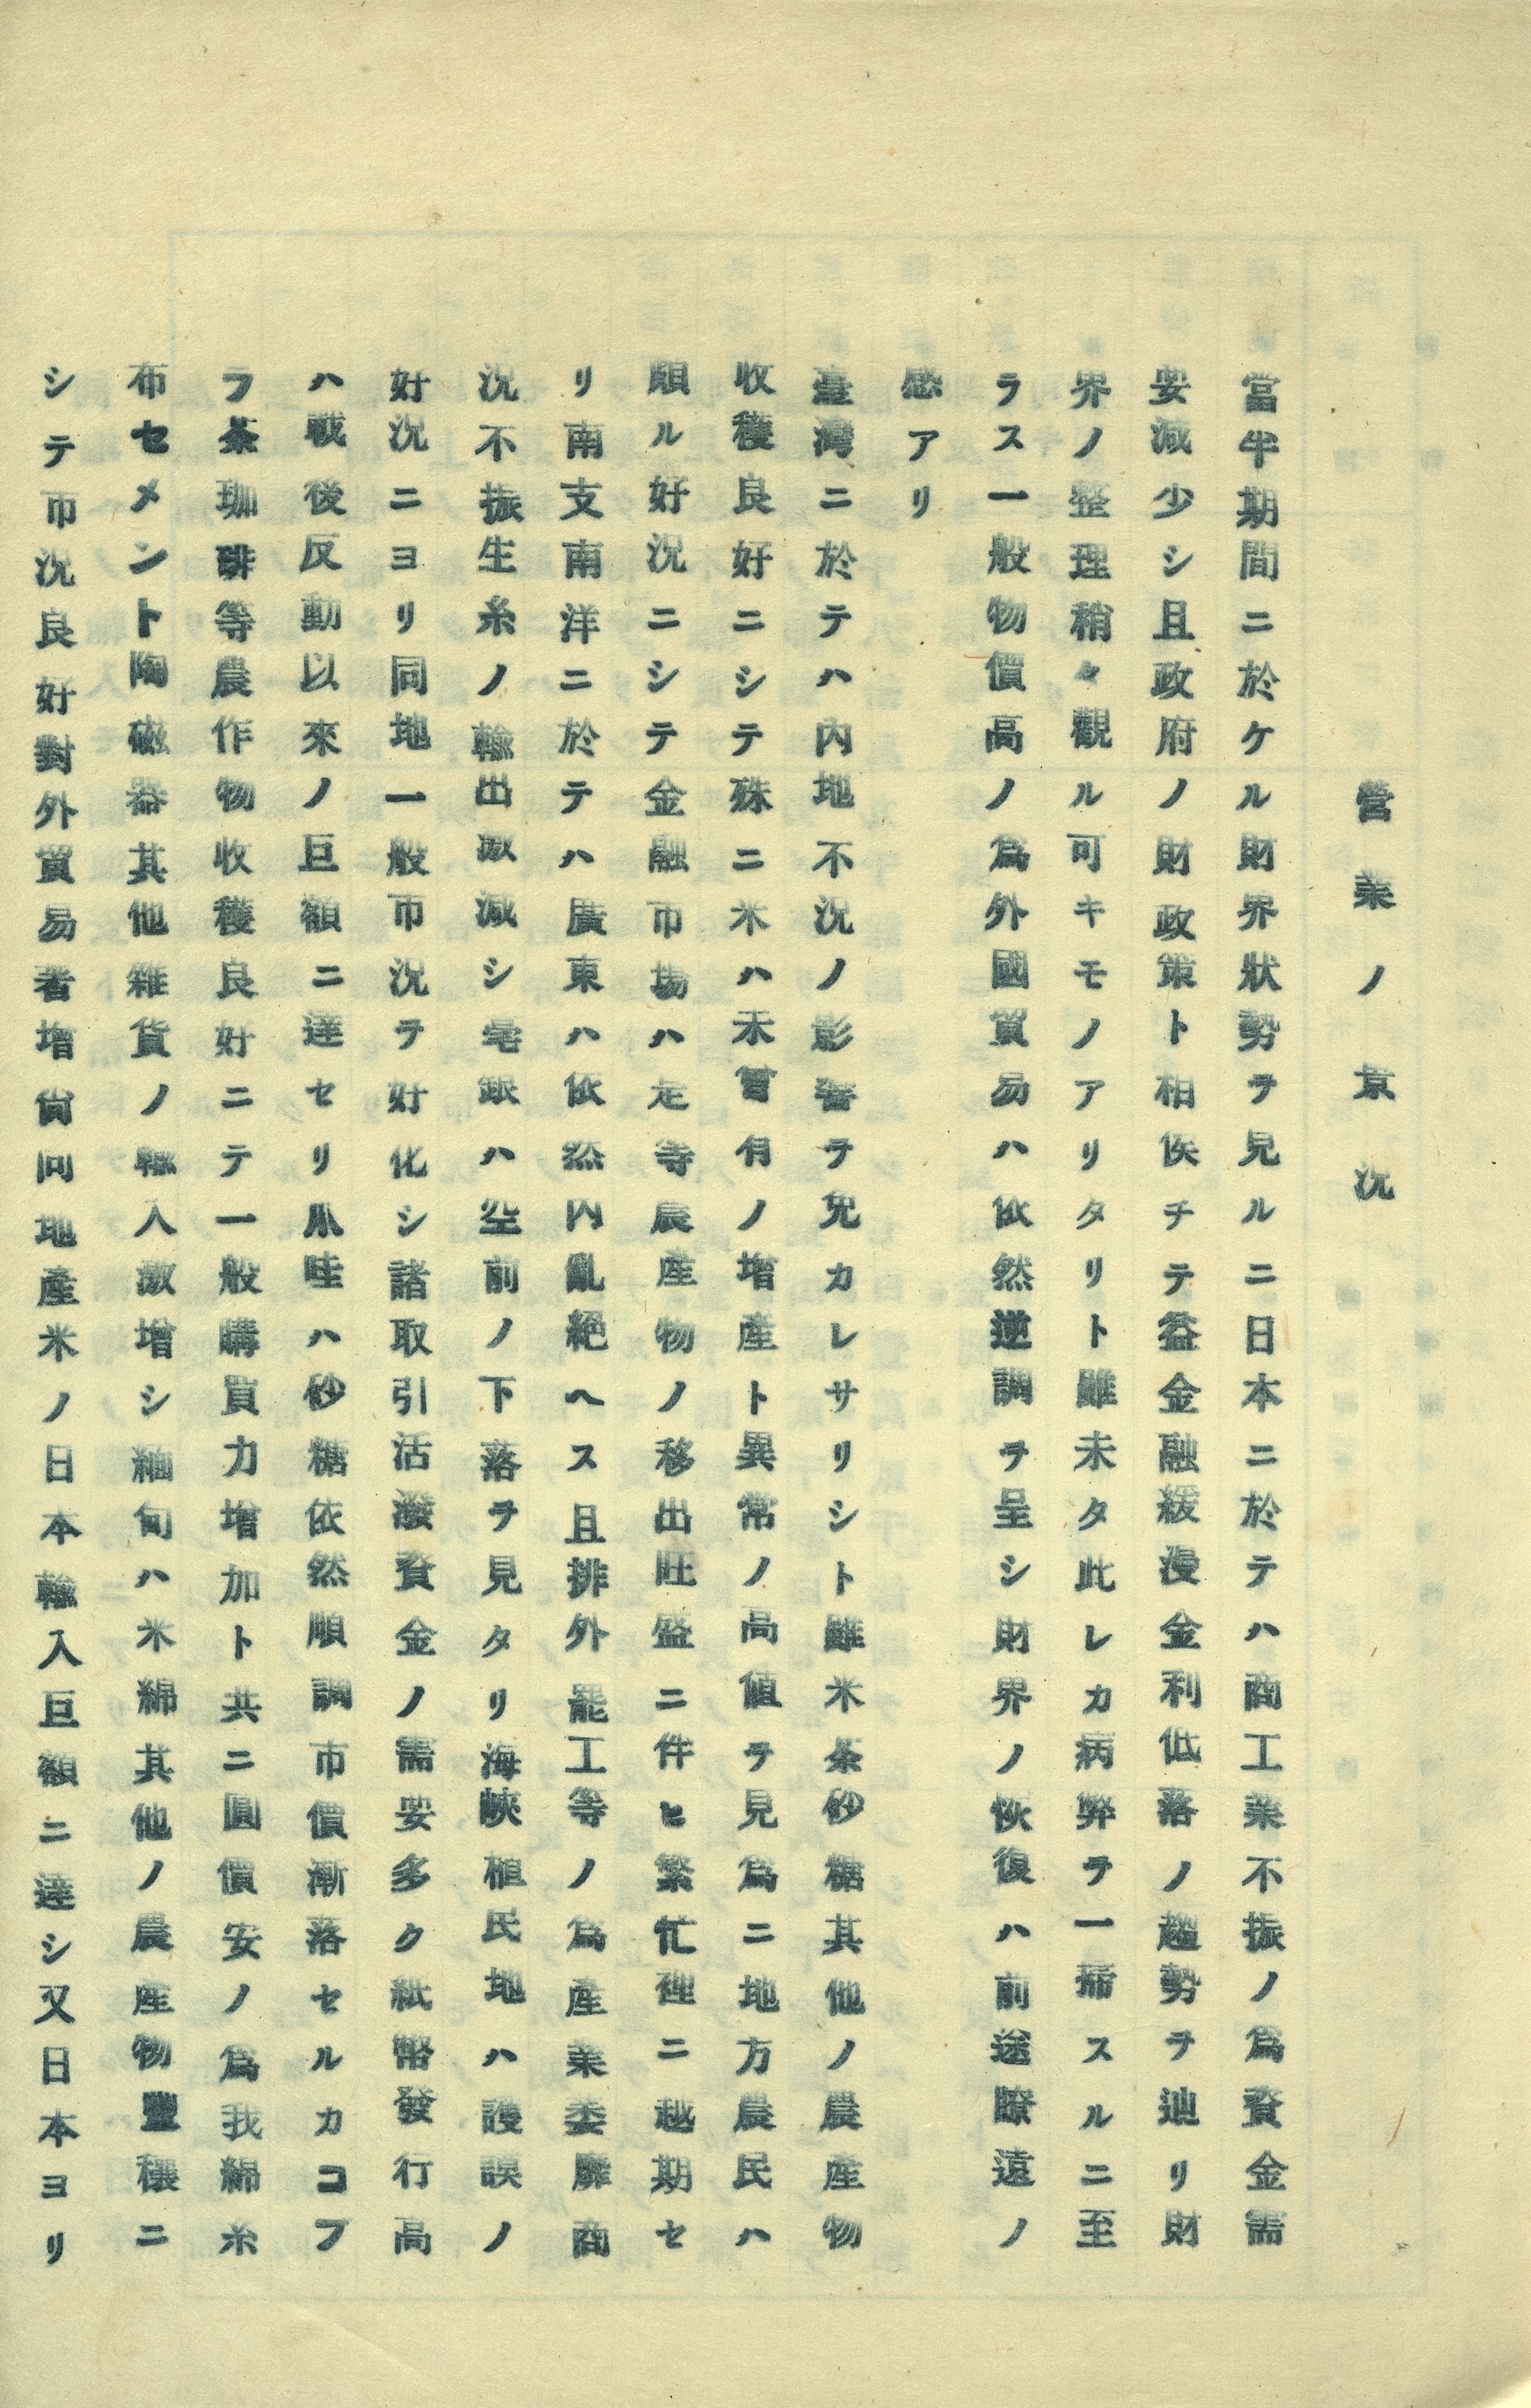 營業ノ景况
當半期間ニ於ケル財界狀勢ヲ見ルニ日本ニ於テハ商工業不振ノ爲資金需
要減少シ且政府ノ財政策ト相俟チテ益金融緩漫金利低落ノ趨勢ヲ辿リ財
界ノ整理稍々觀ル可キモノアリタリト雖未タ此レカ病弊ヲ一掃スルニ至
ラス一般物價高ノ爲外國貿易ハ依然逆調ヲ呈シ財界ノ恢復ハ前途瞭遠ノ
感アリ
臺灣ニ於テハ內地不況ノ影響ヲ免カレサリシト雖米茶砂糖其他ノ農產物
收穫良好ニシテ殊ニ米ハ未曾有ノ增產ト異常ノ高値ヲ見爲ニ地方農民ハ
頗ル好況ニシテ金融市場ハ是等農產物ノ移出旺盛ニ伴ヒ繁忙裡ニ越期セ
リ南支南洋ニ於テハ廣東ハ依然內亂絕ヘス且排外罷工等ノ爲產業委靡商
況不振生糸ノ輸出激減シ毫銀ハ空前ノ下落ヲ見タリ海峽植民地ハ護謨ノ
好況ニヨリ同地一般市況ヲ好化シ諸取引活潑資金ノ需要多ク紙幣發行高
ハ戰後反動以來ノ巨額ニ達セリ爪哇ハ砂糖依然順調市價漸落セルカコプ
ラ茶珈琲等農作物收穫良好ニテ一般購買力增加ト共ニ圓價安ノ爲我綿糸
布セメント陶磁器其他雜貨ノ輸入激增シ緬甸ハ米綿其他ノ農產物豐穰ニ
シテ市況良好對外貿易著增尙同地產米ノ日本輸入巨額ニ達シ又日本ヨリ